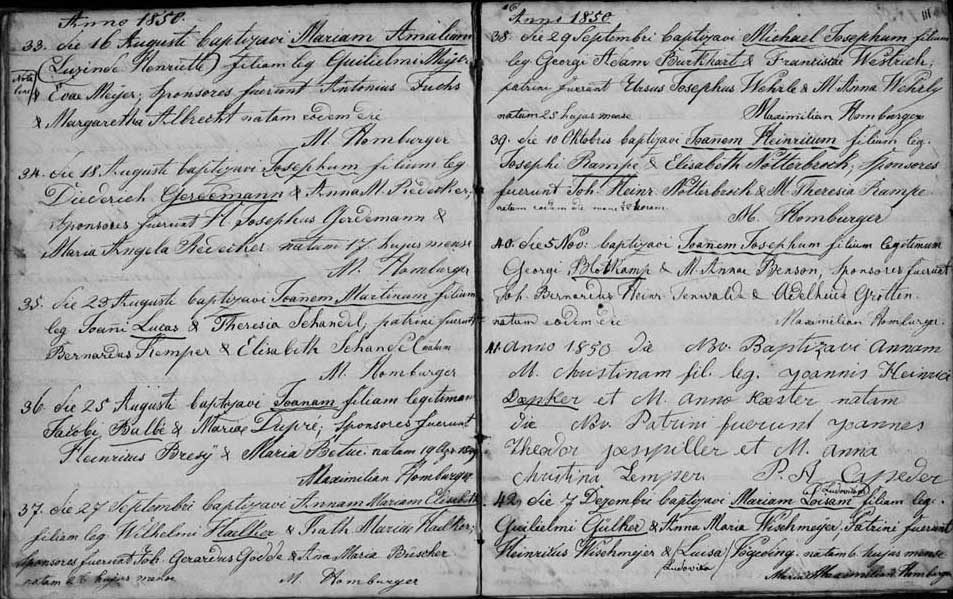 Anno 1850.
33. die 16 Augusti baptizavi Mariam Amaliam
(Luzinde Henriette) filiam leg Guilielmi Meijer
Nota
bene
& Evae Meijer, sponsores fuerunt Antonius Fuchs
& Margaretha Albrecht natam eodem die
M. Homburger
34. die 18 Augusti baptizavi Josephum filium leg
Diederich Gerdemann & Anna M. Redecker,
sponsores fuerunt H. Josephus Gerdemann &
Maria Angela Redecker natum 17 hujus mense
M. Homburger
35. die 23 Augusti baptizavi Joanem Martinum filium
leg Joani Lucas & Theresia Schandel, patrini fuerunt
Bernardus Kemper & Elisabeth Schandel
M. Homburger
36. die 25 Augusti baptizavi Joanam filiam legitimam
Jacobi Balbé & Mariae Dupré; sponsores fuerunt
Heinrikus & Maria natam 19
Maximilian Homburger
37. die 27 Septembri baptizavi Annam Mariam Elisabeth
filiam leg Wilhelmi & Kath. Mariae
sponsores fuerunt Joh. Gerardus & Ana Maria
natam 26 hujus mense M. Homburger
Anni 1850
38. die 29 Septembri baptizavi Michael Josephum filium
leg Georgi Adam Burkhart & Franziscae Westrich;
patrini fuerunt Ursus Josephus Wehrle & M. Anna Wehrly
natum 25 hujus mense Maximilian Homburger
39. die 10 Oktobris baptizavi Joanem Heinricum filium leg.
Josephi Rampe & Elisabeth Notterbroch; sponsores
fuerunt Joh. Heinr. Notterbroch & M. Theresia Rampe
natum eodem die mane horam.
M. Homburger
40. die 5 Nov: baptizavi Joanem Josephum filium legitimum
Georgi Blotkamp & M. Annae Benson, sponsores fuerunt
Joh. Bernardus Heinr. & Adelheid
natum eodem die Maximilian Homburger.
41. Anno 1850 die Nov. Baptizavi Annam
M. Christinam fil. leg. Joannis Heinrici
et M. Anna natam
die Nov. Patrini fuerunt Joannes
Theodor et M. Anna
Christina Kemper P. H.
(Ludovica)
42. die 7 Dezembri baptizavi Mariam Loisam filiam leg.
Guilielmi Gülker & Anna Maria Wischmeyer, Patrini fuerunt
Heinrikus Wischmeyer & Luisa natam 6 hujus mense
(Ludovika)
Maximilian Homburger